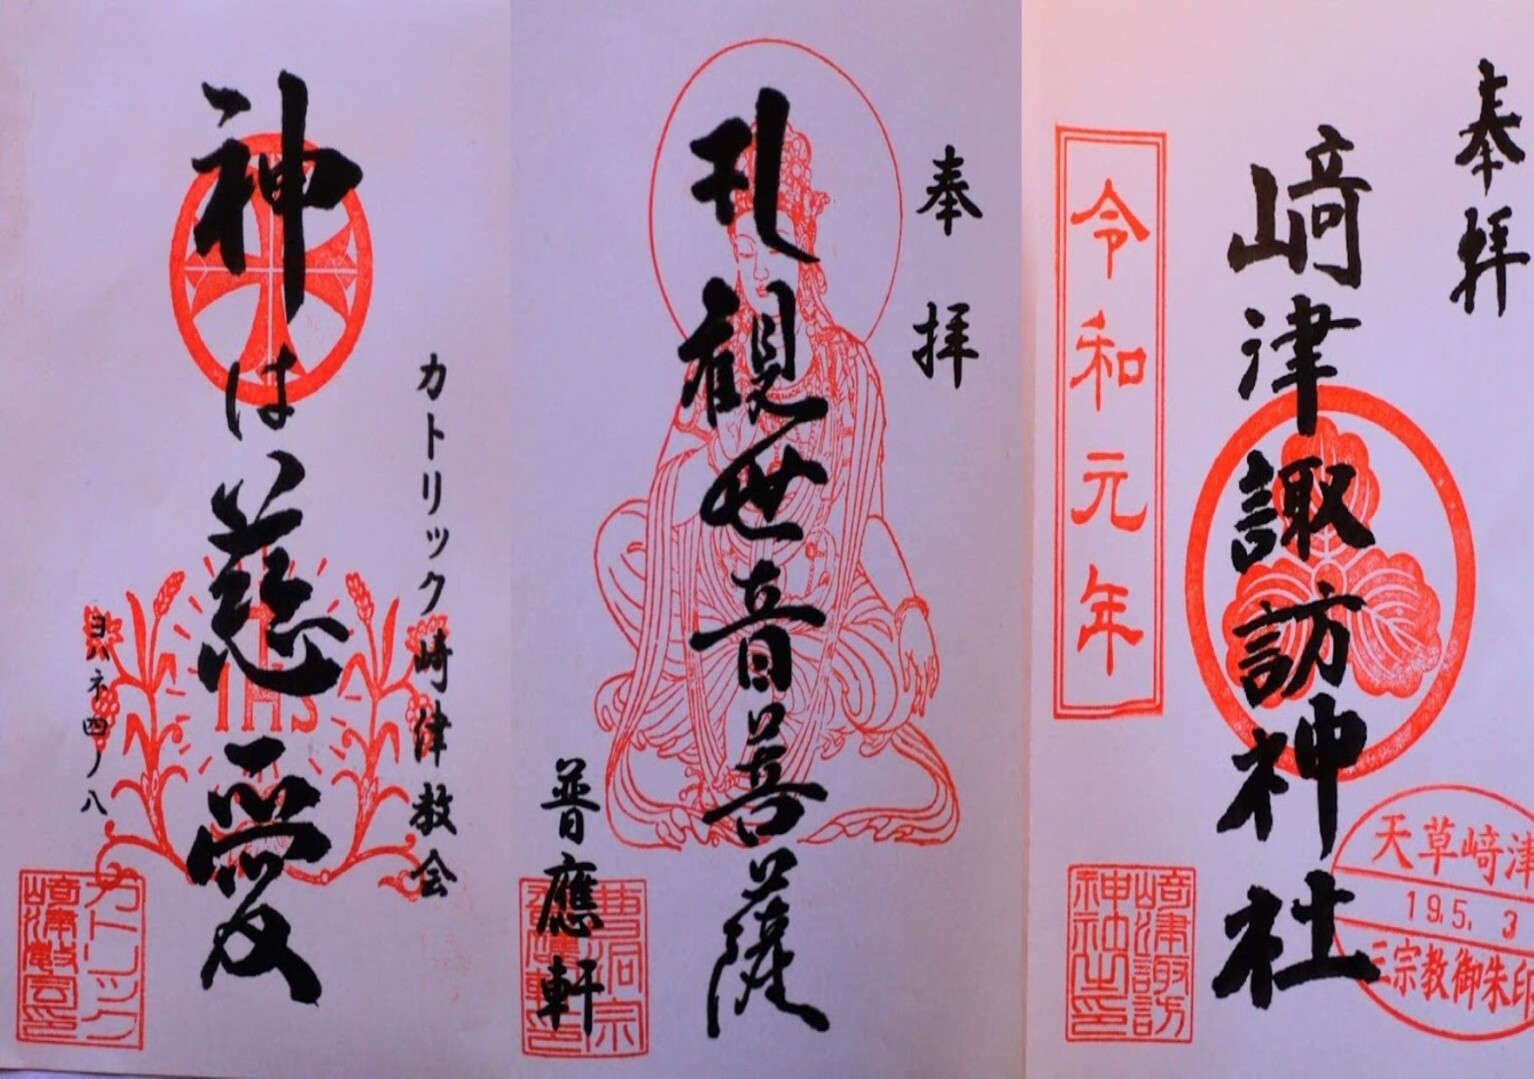 奉拝
﨑津諏訪神社
令和元年
﨑津諏訪
神社之印
天草﨑津
19.5.3
三宗教御朱印
奉拝
孔観世音菩薩
普應軒
曹洞宗
普應軒印
カトリック﨑津教会
神は慈愛
ヨハネ四ノ八
IHS
カトリック
﨑津教会印